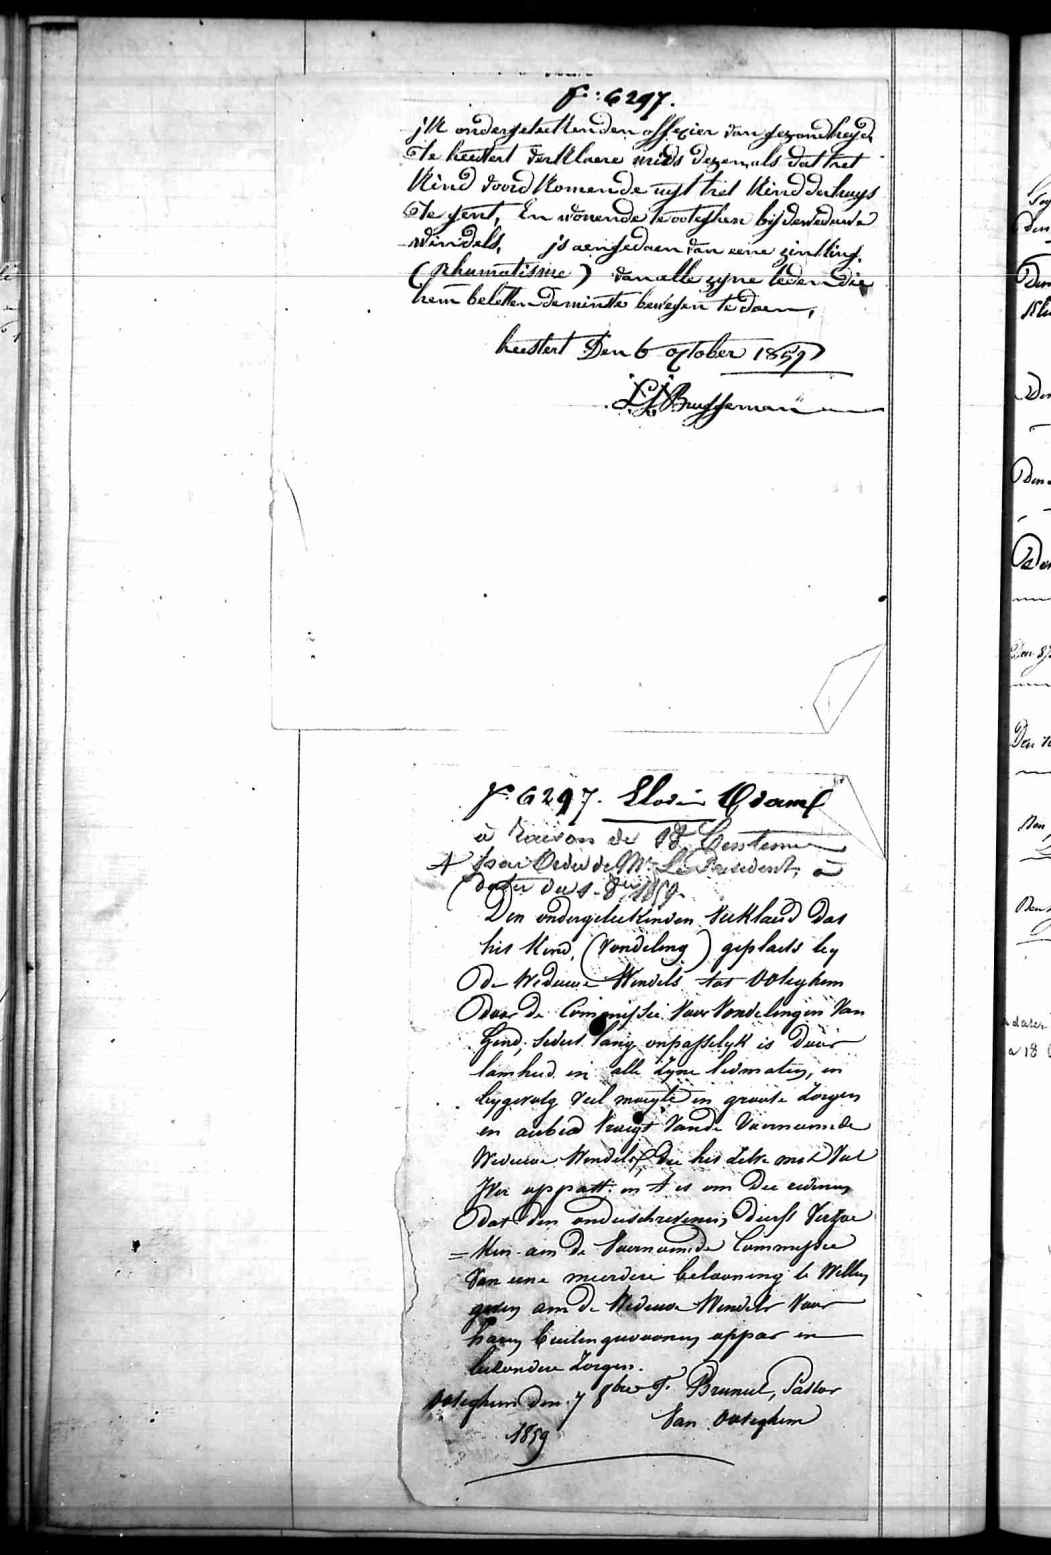 F: 6297.
jK ondergeteekenden offizier van gezondheyd
Te heestert verklaere mids dezen, als dat het
Kind voord komende uyt het Kinderhuys
Te gent, En wonende te ooteghem bij de weduwe
windels, is aengedaen van eene zinking,
(Rhumatisme) van alle zyne leden die
hem beletten de minste bewegen te doen,
heestert Den 6 october 1859
Bruggeman
F. 6297. Adams
à raison de 18 Centimes
+ par Ordre de Mr. Le President, à
dater du 1 - 8bre 1859.
Den ondergeteekenden verklaerd dat
het Kind, (Vondeling) geplaets by
De Weduwe Windels tot Ooteghem
Door de Commissie voor Vondelingen Van
Gend, sedert lang onpasselyk is Door
lamheid in alle zyne ledmaten, en
bygevolg veel moeyte en groote zorgen
en arbeid vraegt Vande Voornoemde
Weduwe Windels, die het zelve met Veel
Yver oppast. en t is om Die redenen
Dat den onderschrevenen durft Verzoe
= ken aen De Voornoemde Commissie
Van eene meerdere belooning te Willen
geven aen de Weduwe Windels Voor
haeren buitengewoonen oppas en
bezondere Zorgen.
Ooteghem Den 7 8bre F. Brunel, Pastor
1859 Van Ooteghem
Den
Den
a dater
a 18